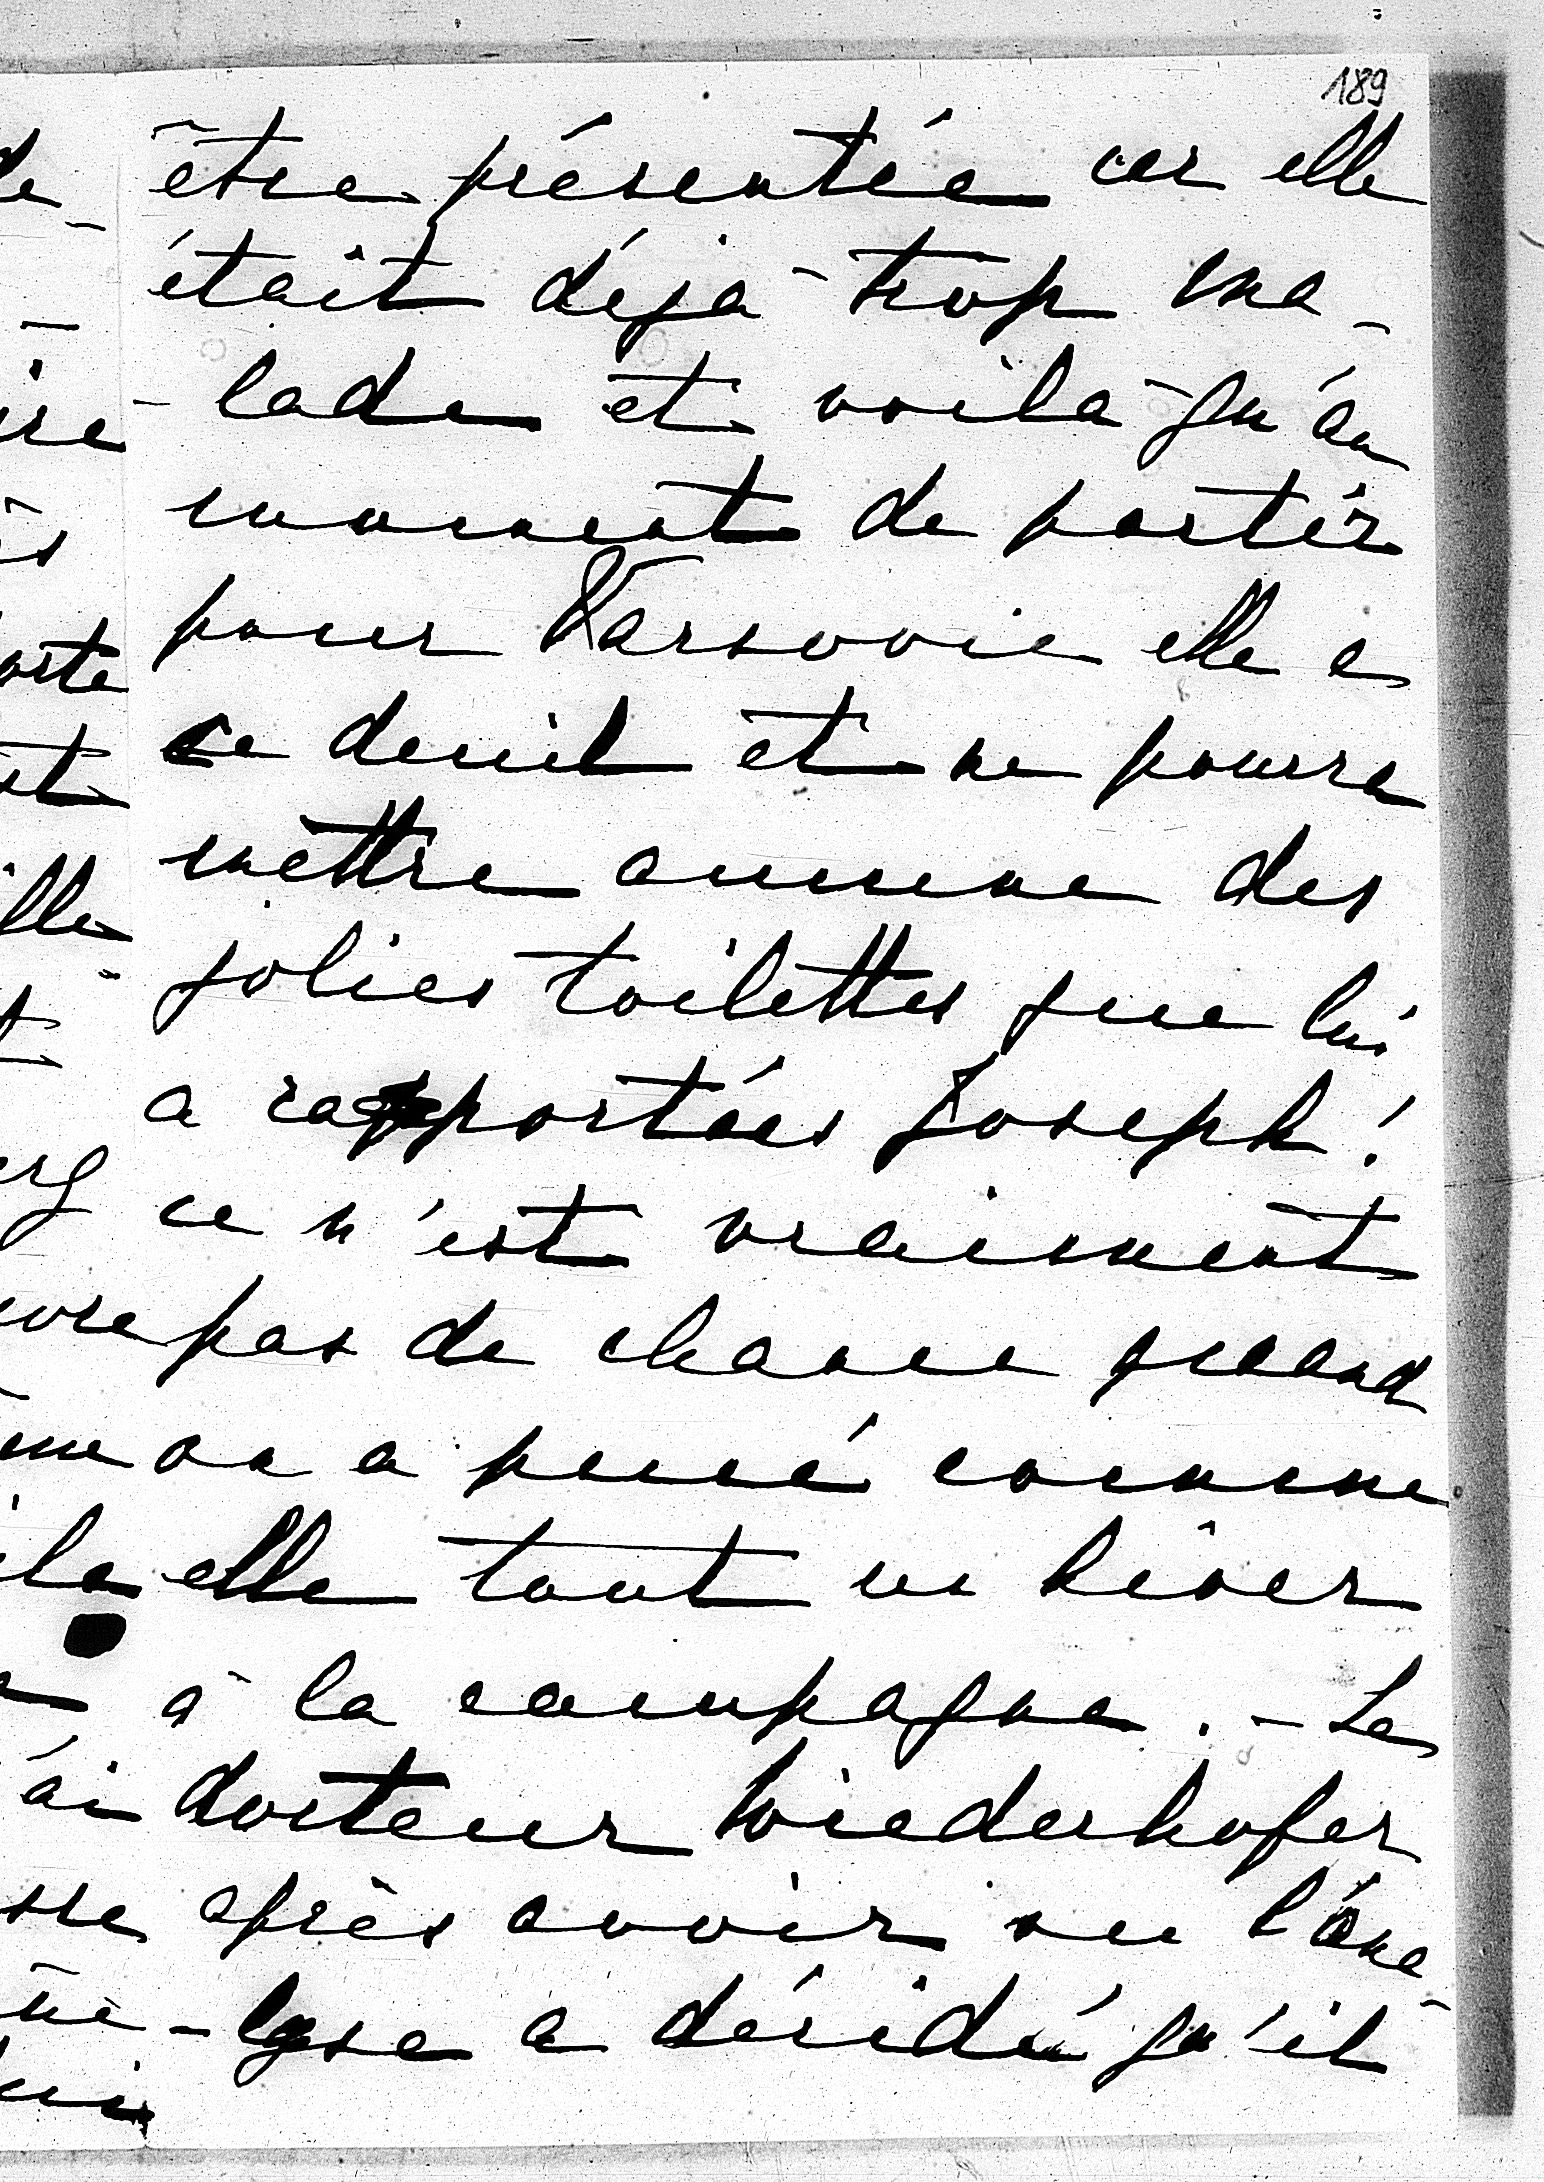 189
être présentée car elle
était déjà trop ma-
-lade et voilà qu'au
moment de partir
pour Varsovie elle a
ce deuil et ne pourra
mettre aucune des
jolies toilettes que lui
a rapportées Joseph!
ce n'est vraiment
pas de chance quand
on a passé comme
elle tout un hiver
à la campagne. - Le
docteur Wiederhofer
après avoir vu l'ana-
-lyse a décidé qu'il